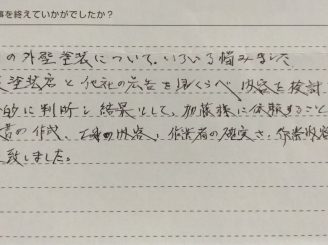 事を終えていかがでしたか?
の外壁塗装について、いろいろ悩みました
塗装店と他社の広告を見くらべ 内容を検討
的に判断と結果として、加藤様に依頼すること
書の作成、工事の内容、作業者の確実さ、作業内容
致しました。